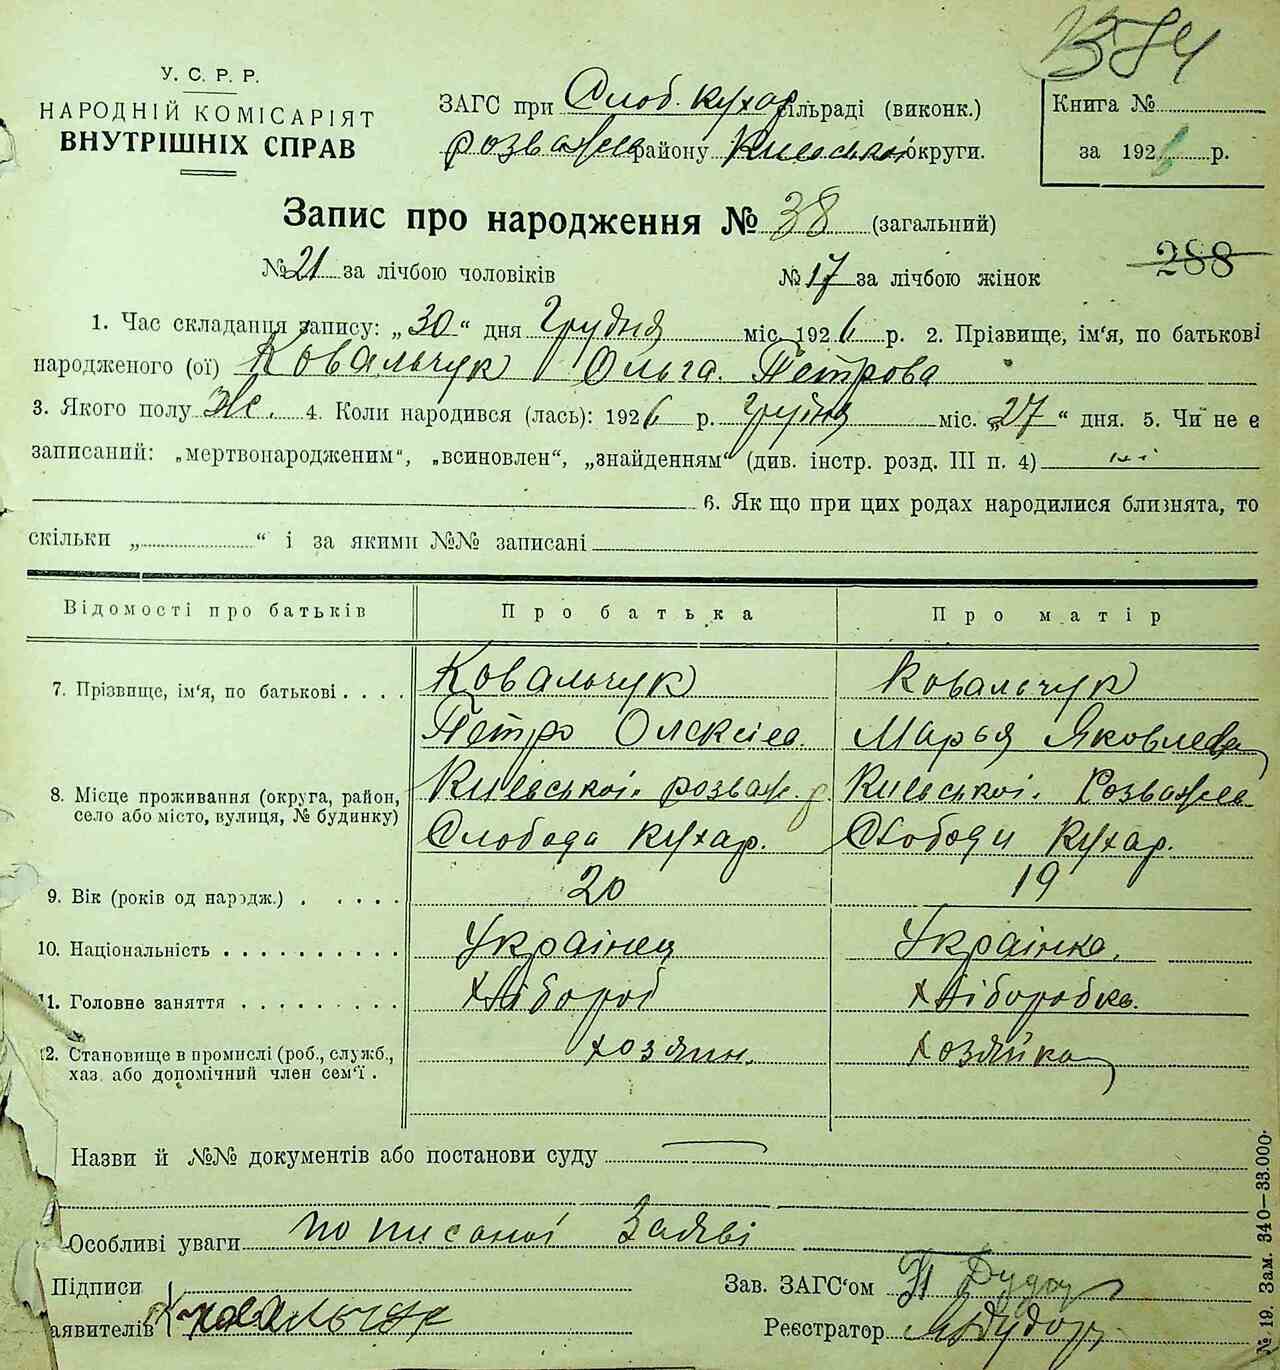 384
У. С. Р. Р.
НАРОДНІЙ КОМІСАРІЯТ
ВНУТРІШНІХ СПРАВ
ЗАГС при Слоб. Кухар сільраді (виконк.)
розважев району Киевськоі округи.
Книга №
за 1926 р.
Запис про народження № 38 (загальний)
288
№ 21 за лічбою чоловіків № 17 за лічбою жінок
1. Час складання запису: „30“ дня Грудня міс. 1926 р. 2. Прізвище, ім‘я, по батькові
народженого (ої) Ковальчук Ольга Петрова
3. Якого полу Ж. 4. Коли народився (лась): 1926 р. Грудня міс. „27“ дня. 5. Чи не є
записаний: „мертвонародженим“, „всиновлен“, „знайденням“ (див. інстр. розд. III п. 4) ні
6. Як що при цих родах народилися близнята, то
скільки „ “ і за якими №№ записані
Відомості про батьків Про батька Про матір
7. Прізвище, ім‘я, по батькові . . . . Ковальчук Ковальчук
Петро Олексіев. Марья Яковлевна
8. Місце проживання (округа, район, село або місто, вулиця, № будинку) Киевськоі. розваж. р. Киевськоі. Розважев
Слобода Кухар. Слободи Кухар.
9. Вік (років од народж.) . . . . . 20 19
10. Національність . . . . . . . . . . Украінец Украінка.
11. Головне заняття . . . . . . . . . Хлібороб Хліборобка.
12. Становище в промислі (роб., служб., хаз. або допомічний член сем‘ї . хозяин. Хозяйка
Назви й №№ документів або постанови суду
Особливі уваги по писаної Заяві
Підписи
аявителів Ковальчук
Зав. ЗАГС‘ом
Реєстратор
№ 19. Зам. 340—33.000.